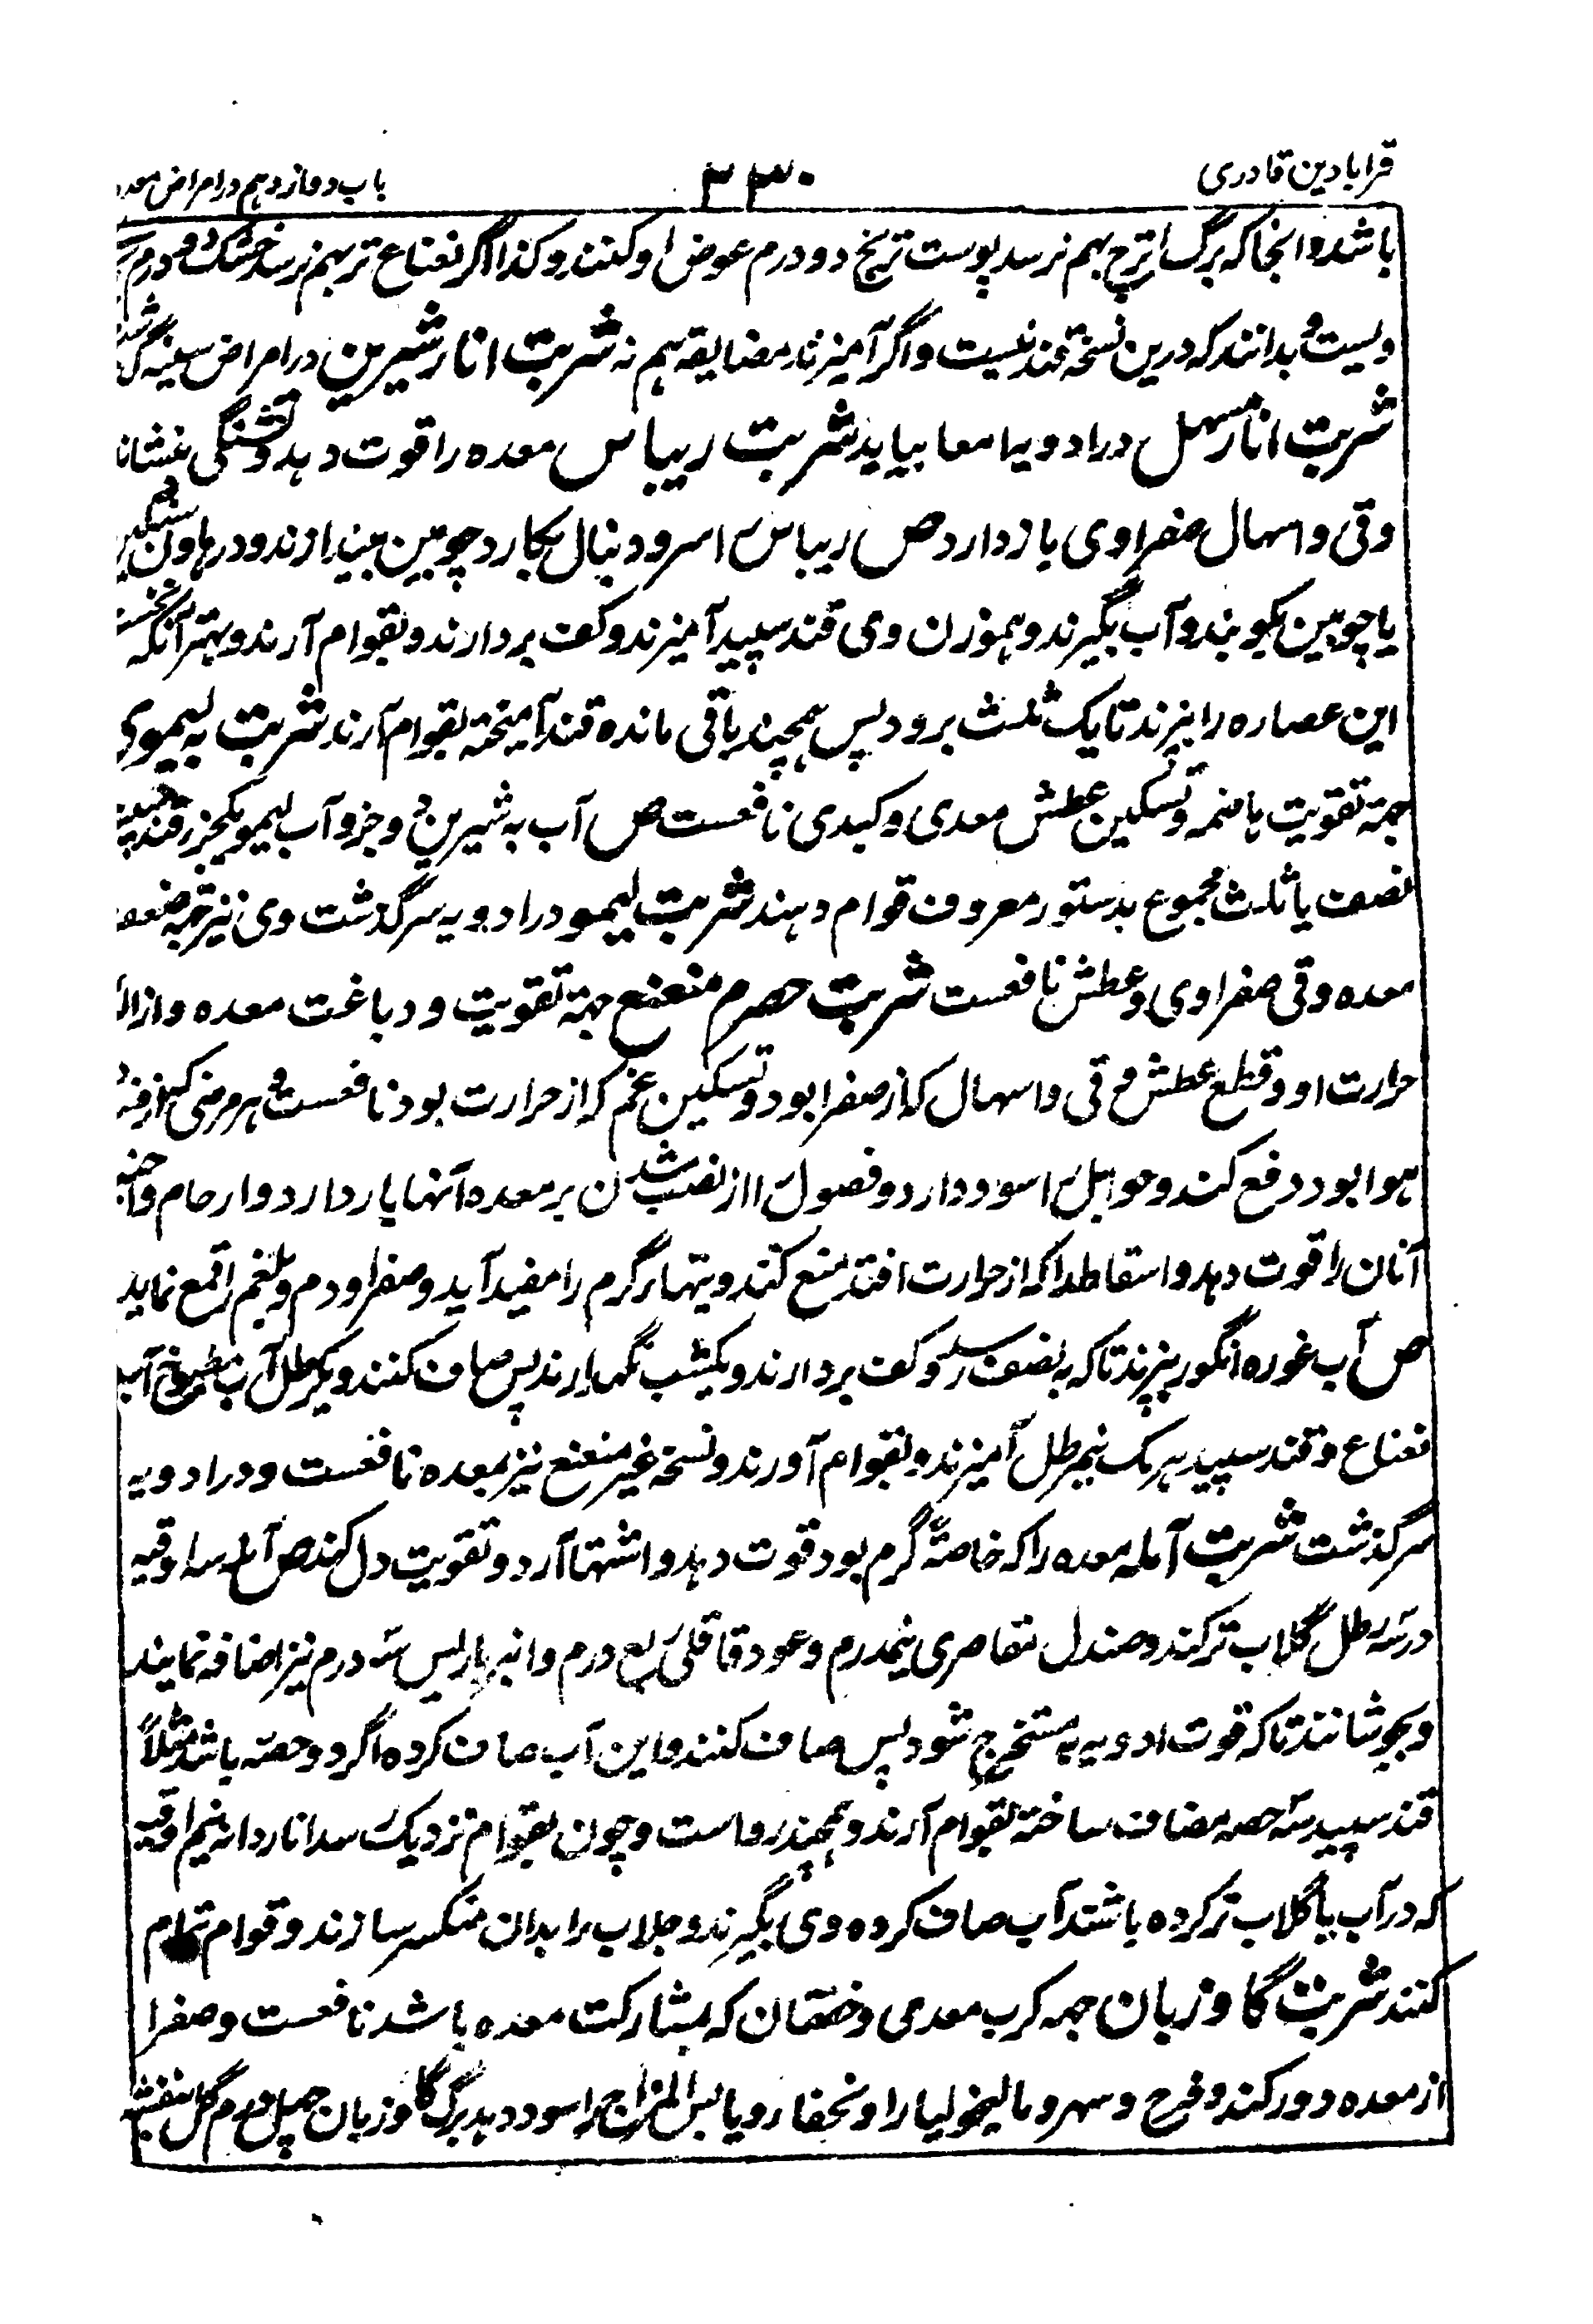 قرابادین قادری
۳۳۰
باب دوازدهم در امراض معده
باشد و انجا که برگ اترج بهم نرسد پوست ترنج دو درم عوض او کنند و کذا اگر نعناع تر بهم نرسد خشک دو درم
و بدانند که درین نسخه قند نیست و اگر آمیزند مضایقه هم نه شربت انار شیرین در امراض سینه گذشت
شربت انار مسهل در ادویه امعا بیاید شربت ریباس معده را قوت دهد و تشنگی بنشاند
و قی و اسهال صفراوی باز دارد ص ریباس را سر و دنبال بکارد چوبین بیندازند و در هاون سنگین
یا چوبین بکوبند و آب بگیرند و هموزن وی قند سپید آمیزند و کف بردارند و بقوام آرند و بهتر آنکه نخست
این عصاره را بپزند تا یک ثلث برود پس همچند باقی مانده قند آمیخته بقوام آرند شربت به لیموی
جهة تقویت هاضمه و تسکین عطش معدی و کبدی نافعست ص آب به شیرین دو جزو آب لیمو یکجزو قند سپید
نصف یا ثلث مجموع بدستور معروف قوام دهند شربت لیمو در ادویه سر گذشت وی نیز جهة ضعف
معده و قی صفراوی و عطش نافعست شربت حصرم منعنع جهة تقویت و دباغت معده و ازاله
حرارت او و قطع عطش و قی و اسهال که از صفرا بود و تسکین غم که از حرارت بود نافعست و هر مرضی که از
هوا بود دفع کند و حوامل را سود دارد و فضول را از نصب شدن بر معده آنها باز دارد و ارحام و اجنه
آنان را قوت دهد و اسقاط را که از حرارت افتد منع کند و تبهای گرم را مفید آید و صفرا و دم و بلغم را قمع نماید
ص آب غوره انگور بپزند تا که به نصف رسد و کف بردارند و یکشب نگهدارند پس صاف کنند و یکرطل آب مطبوخ آب
نعناع و قند سپید هر یک نیم رطل آمیزند و بقوام آورند و نسخه غیر منعنع نیز بمعده نافعست و در ادویه
سر گذشت شربت آمله معده را که خاصةً گرم بود قوت دهد و اشتها آرد و تقویت دل کند ص آمله سه اوقیه
در سه رطل گلاب تر کنند و صندل مقاصری نیمدرم و عود قاقلی ربع درم و انبرباریس سه درم نیز اضافه نمایند
و بجوشانند تا که قوت ادویه مستخرج شود پس صاف کنند و این آب صاف کرده اگر دو حصه باشد مثلاً
قند سپید سه حصه مضاف ساخته بقوام آرند و همچند رواست و چون بقوام نزدیک رسد اناردانه نیم اوقیه
که در آب یا گلاب تر کرده باشند آب صاف کرده وی بگیرند و جلاب را بدان منکسر سازند و قوام تمام
کنند شربت گاوزبان جهة کرب معدی و خفقان که بمشارکت معده باشد نافعست و صفرا
از معده دور کند و فرح و سهر و مالیخولیا را و نحفا رو یابس المزاج را سود دهد برگ گاوزبان چهل درم گل بنفشه